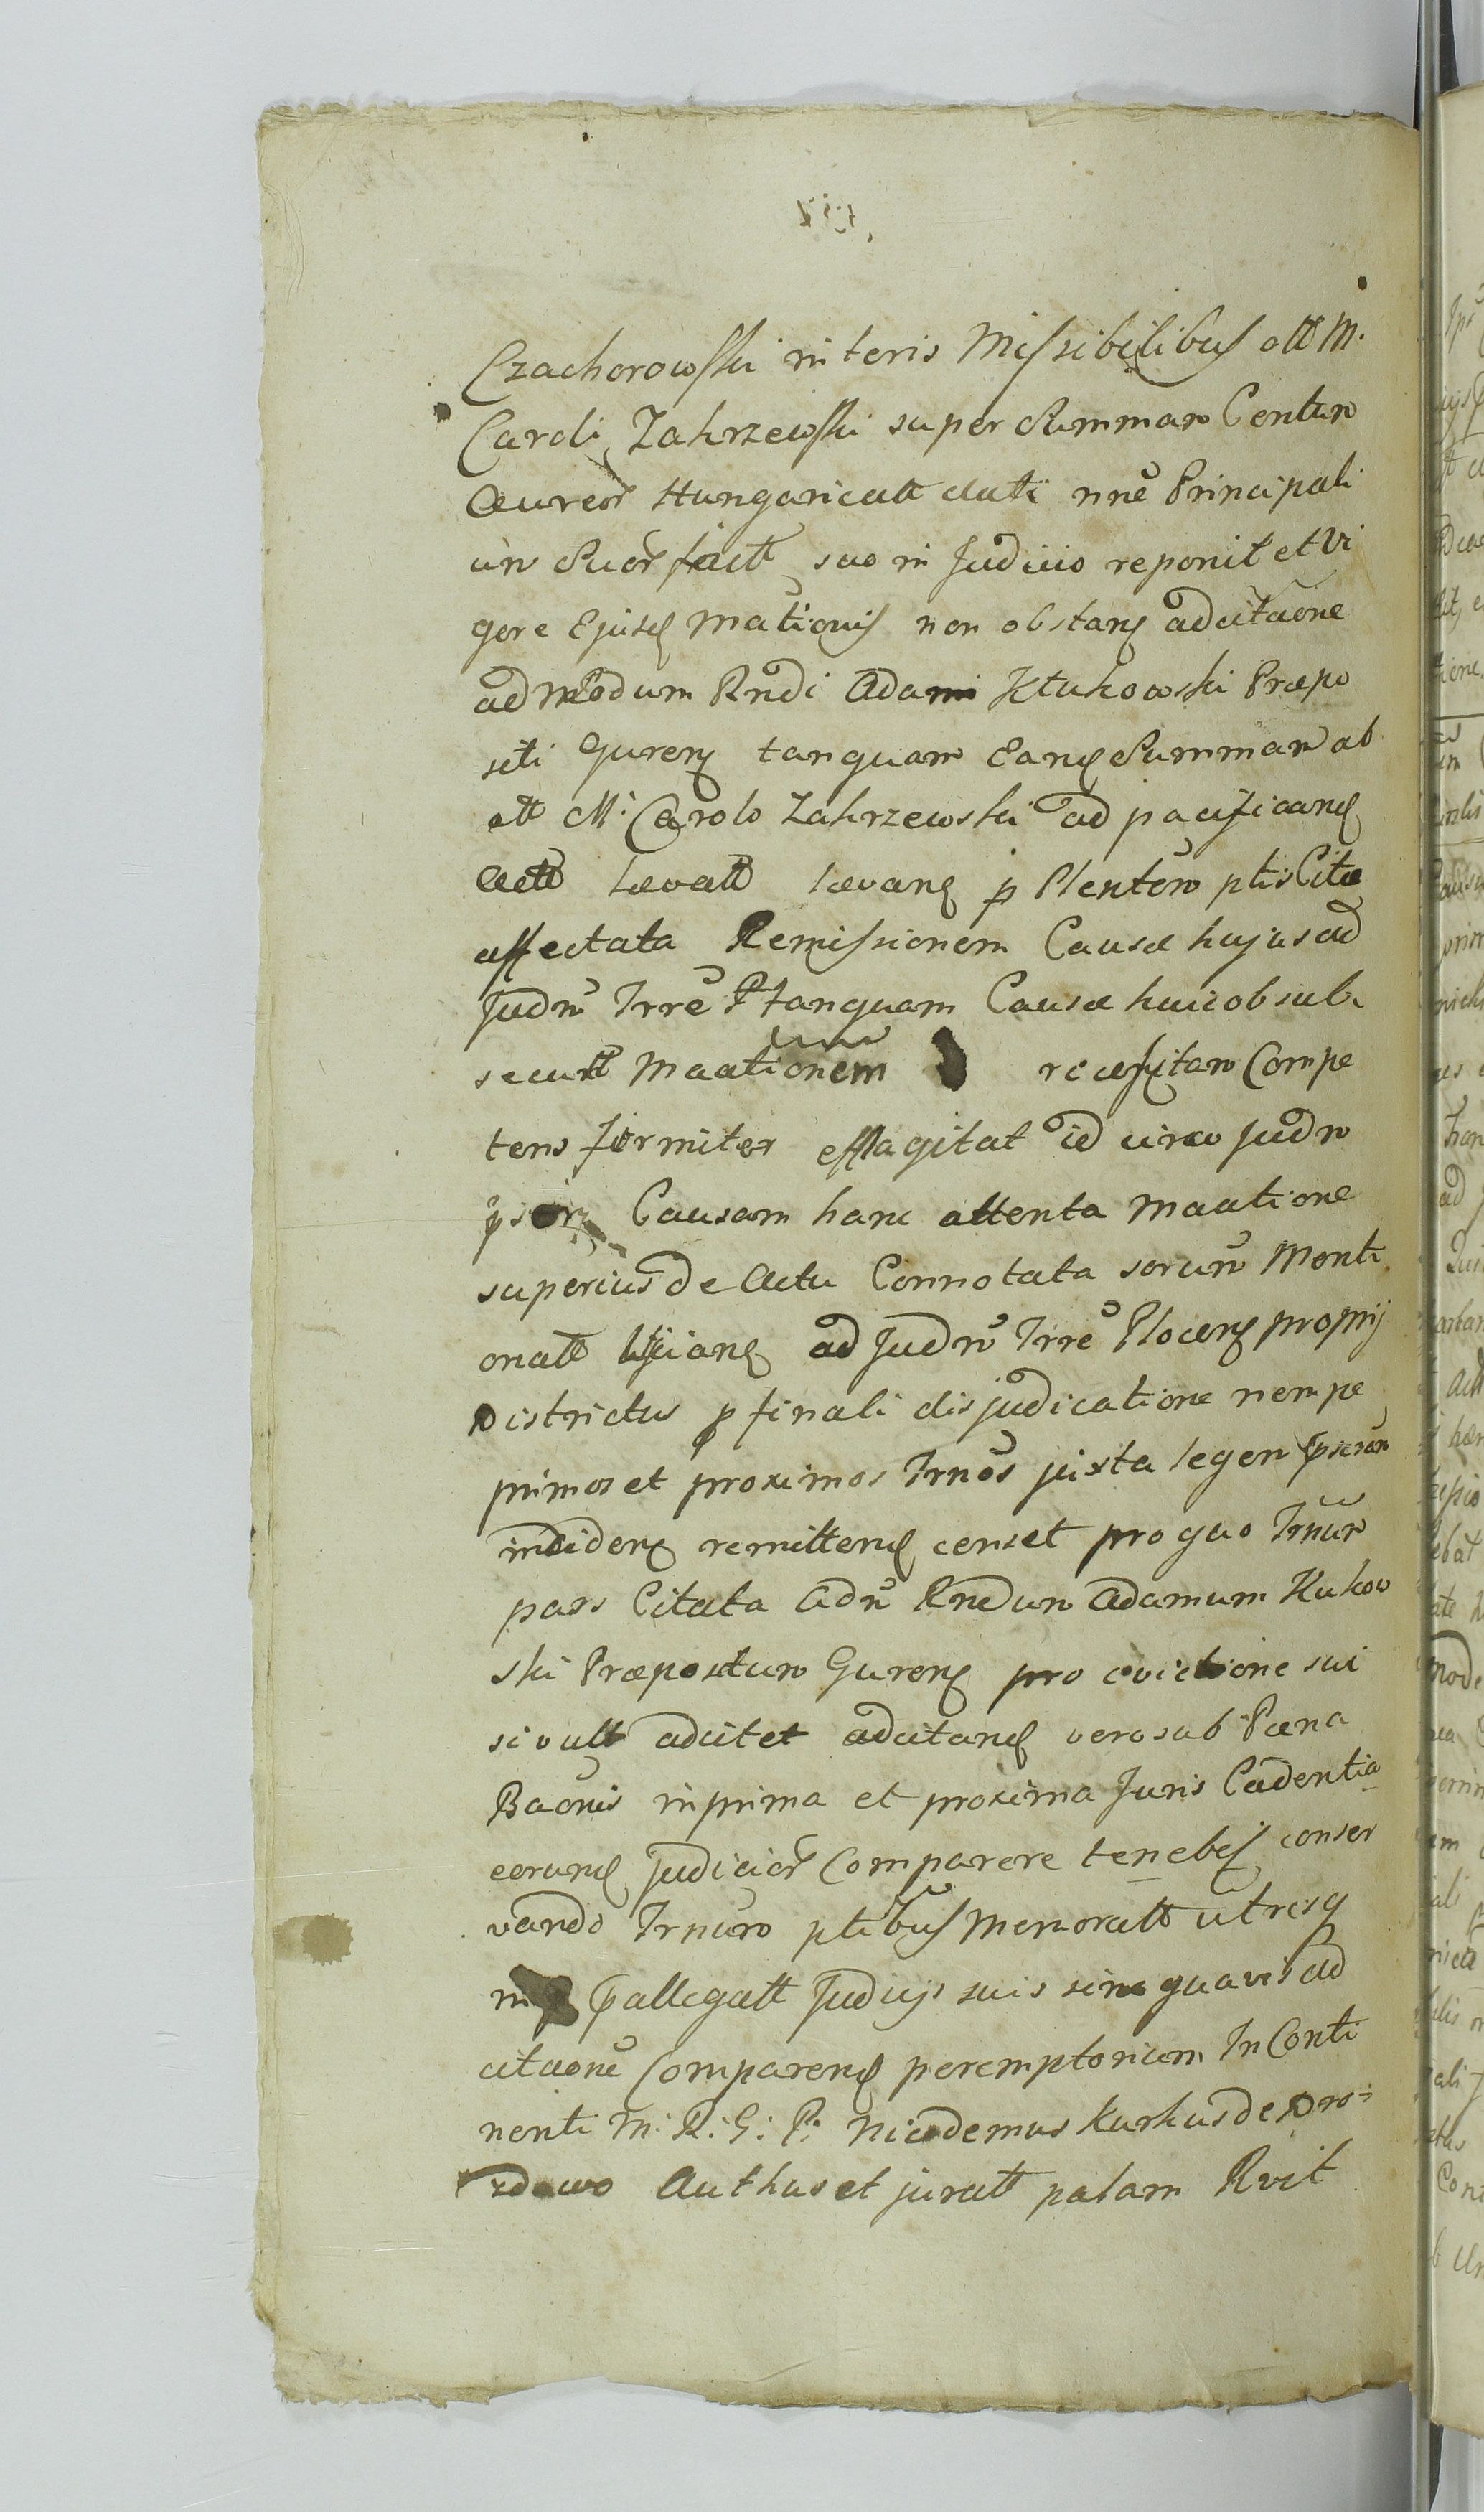 Czachorowski in teris Missibilibus olt M.
Caroli Zakrzewski super Summam Centum
Aureor Hungaricatt dati nne Principali
um Suor fact suo in Judicio reponit et vi
gore Ejusq mationis non obstanq adcitaone
admodum Rndi Adami Kukowski Præpo
siti Gurenq tanquam Eanq Summam ab
ott M. Carolo Zakrzewski ad pacificanq
Actt Levatt levanq p Plentem ptis Citæ
affectata Remissionem Causæ hujus ad
Judm Trre P tanquam Causæ huic ob sub
secutt Maationem Compe
tens firmiter efflagitat id circo Judm
Causam hanc attenta Maatione
superius de Actu Connotata sorum Menti
onatt ad Judm Trre Plocenq proprij
Districtus p finali disjudicatione nempe
primos et proximos Trnos juxta legem
incidenq remittenq censet pro quo Trnum
pars Citata Adm Rndum Adamum Kukow
ski Præpositum Gurenq pro evictione sui
si vult adcitet adcitanq vero sub Pæna
Baonis in prima et proxima Juris Cadentia
eorunq Judicior Comparere tenebis conser
vando Trnum ptibus Memoratt utrisq
in pallegatt Judicijs suis sine quavis ad
citaone Comparenq peremptorium In Conti
nenti M. R. G. P. Nicodemus Kurkus de Dro
zdowo Authus et juratt palam Rvit